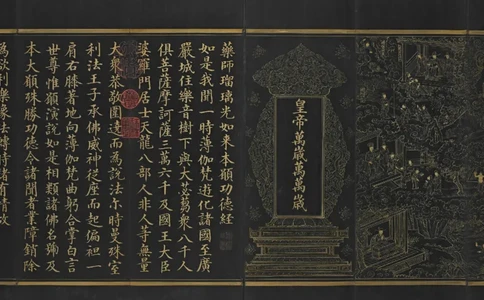 皇帝萬歲萬萬歲
藥師瑠璃光如來本願功德經
如是我聞一時薄伽梵遊化諸國至廣
嚴城住樂音樹下與大苾芻衆八千人
俱菩薩摩訶薩三萬六千及國王大臣
婆羅門居士天龍八部人非人等無量
大衆恭敬圍遶而為說法尒時曼殊室
利法王子承佛威神從座而起偏袒一
肩右膝著地向薄伽梵曲躬合掌白言
世尊惟願演說如是相類諸佛名號及
本大願殊勝功德令諸聞者業障銷除
為欲利樂像法轉時諸有情故